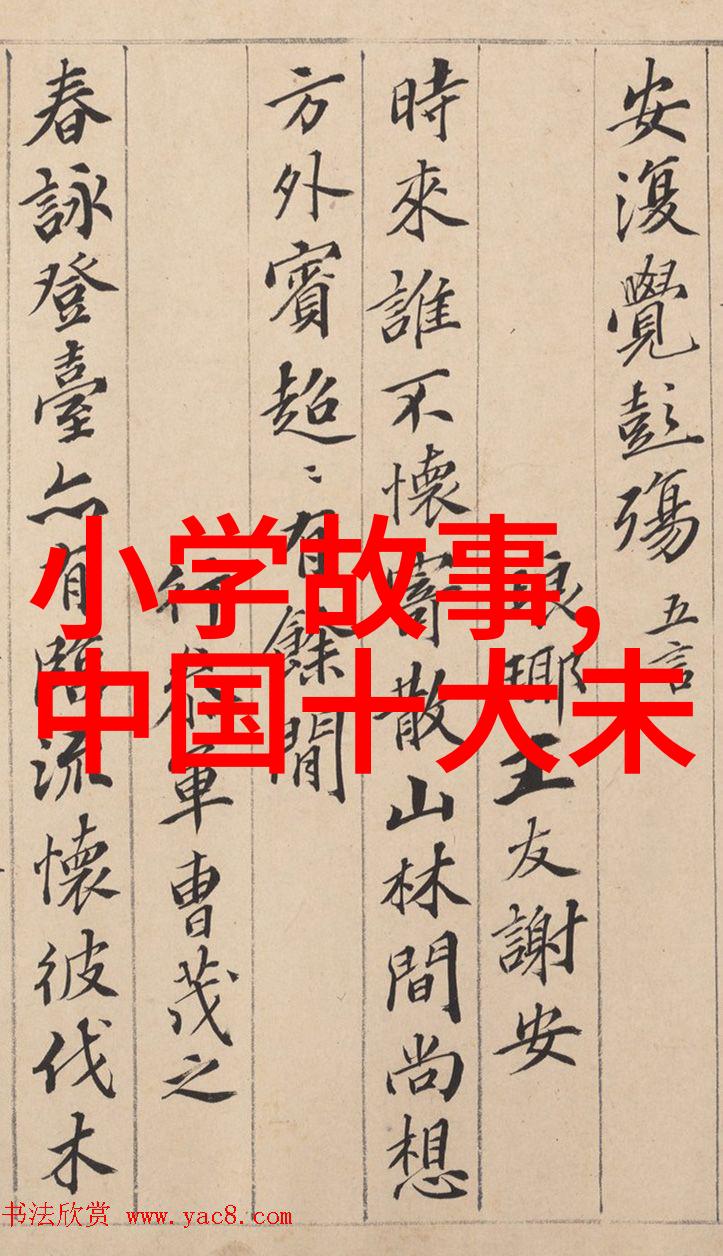 安復覺彭殤 五言
琅琊王友謝安
時來誰不懷寄散山林間尚想
方外賓超〻有餘閒
行參軍曹茂之
春詠登臺亦有臨流懷彼伐木
小学故事,
中国十大未
书法欣赏 www.yac8.com